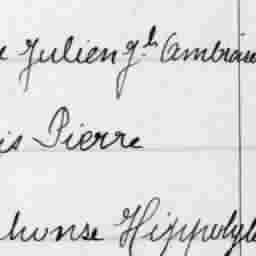 e Julien Jh Ambroise
is Pierre
phonse Hippolyte